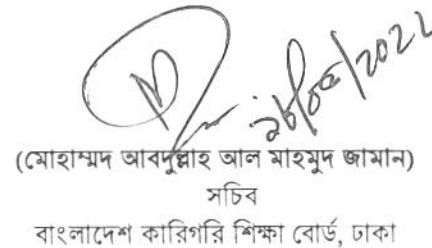 (মোহাম্মদ আবদুল্লাহ আল মাহমুদ জামান)
সচিব
বাংলাদেশ কারিগরি শিক্ষা বোর্ড, ঢাকা